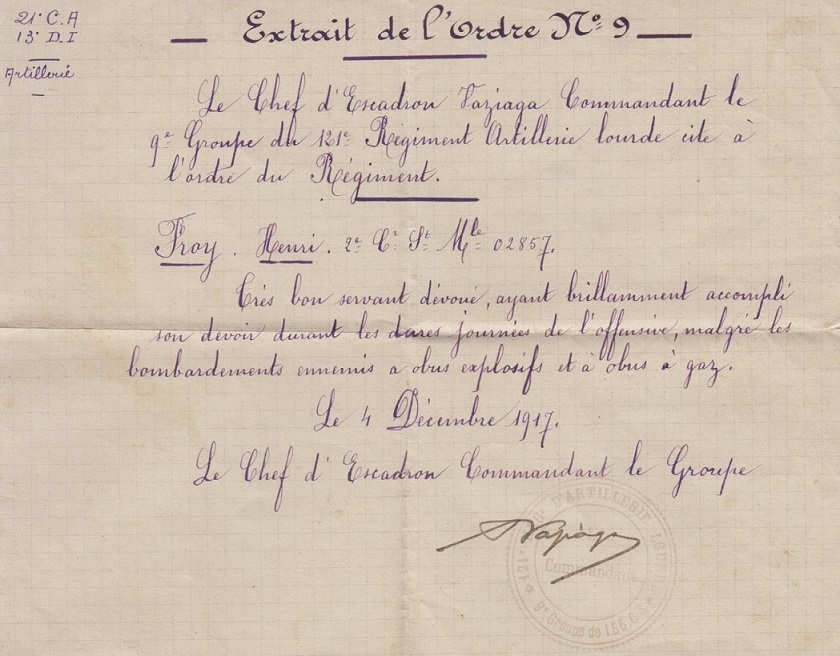 21e C.A
13e D.I
Artillerie
Extrait de l'Ordre No 9
Le Chef d'Escadron Vaziaga Commandant le
9e Groupe du 121e Régiment Artillerie lourde cite à
l'ordre du Régiment.
Froy. Henri. 2e Cr St Mle 02857.
Très bon servant dévoué, ayant brillamment accompli
son devoir durant les dures journées de l'offensive, malgré les
bombardements ennemis a obus explosifs et à obus à gaz.
Le 4 Décembre 1917.
Le Chef d'Escadron Commandant le Groupe
121e D'ARTILLERIE LOURDE
Commandant
9e Groupe de 155.C.S